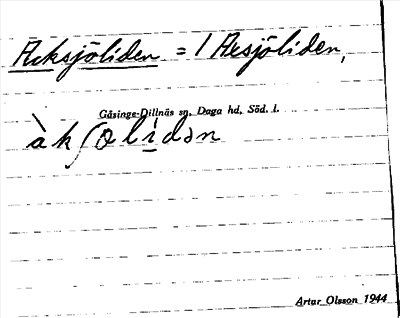 Acksjöliden = / Aesjöliden,
Gåsinge-Dillnäs sn, Daga hd, Söd. l.
àkʃølidən
Artur Olsson 1944